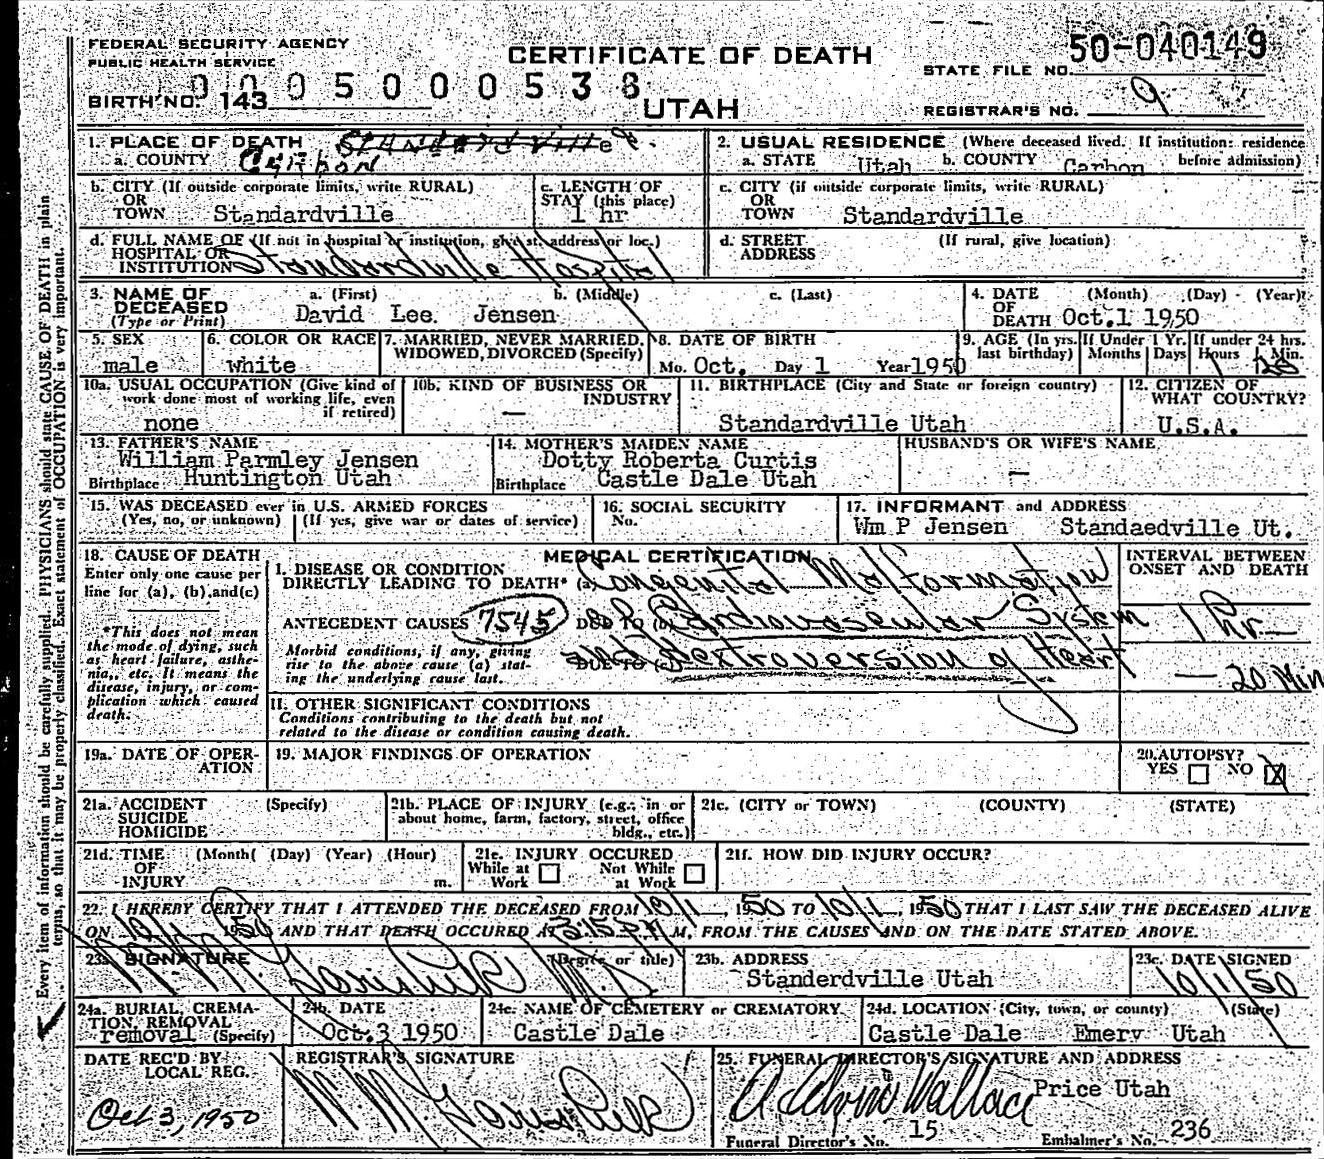 FEDERAL SECURITY AGENCY
PUBLIC HEALTH SERVICE
CERTIFICATE OF DEATH
UTAH
STATE FILE NO. 50-040149
0005000538
BIRTH NO. 143
REGISTRAR'S NO. 9
1. PLACE OF DEATH Standardville
a. COUNTY Carbon
2. USUAL RESIDENCE (Where deceased lived. If institution: residence before admission)
a. STATE Utah b. COUNTY Carbon
b. CITY (If outside corporate limits, write RURAL)
OR
TOWN Standardville
c. LENGTH OF STAY (this place)
1 hr
c. CITY (if outside corporate limits, write RURAL)
OR
TOWN Standardville
d. FULL NAME OF (If not in hospital or institution, give st. address or loc.)
HOSPITAL OR
INSTITUTION Standardville Hospital
d. STREET ADDRESS (If rural, give location)
3. NAME OF DECEASED (Type or Print)
a. (First) b. (Middle) c. (Last)
David Lee. Jensen
4. DATE OF DEATH (Month) (Day) (Year)
Oct.1 1950
5. SEX
male
6. COLOR OR RACE
white
7. MARRIED, NEVER MARRIED, WIDOWED, DIVORCED (Specify)
8. DATE OF BIRTH
Mo. Oct. Day 1 Year 1950
9. AGE (In yrs. last birthday) If Under 1 Yr. Months Days If under 24 hrs. Hours Min.
1
10a. USUAL OCCUPATION (Give kind of work done most of working life, even if retired)
none
10b. KIND OF BUSINESS OR INDUSTRY
—
11. BIRTHPLACE (City and State or foreign country)
Standardville Utah
12. CITIZEN OF WHAT COUNTRY?
U.S.A.
13. FATHER'S NAME
William Parmley Jensen
Birthplace Huntington Utah
14. MOTHER'S MAIDEN NAME
Dotty Roberta Curtis
Birthplace Castle Dale Utah
HUSBAND'S OR WIFE'S NAME
—
15. WAS DECEASED ever in U.S. ARMED FORCES
(Yes, no, or unknown) (If yes, give war or dates of service)
16. SOCIAL SECURITY
No.
17. INFORMANT and ADDRESS
Wm P Jensen Standaedville Ut.
18. CAUSE OF DEATH
Enter only one cause per line for (a), (b), and (c)
*This does not mean the mode of dying, such as heart failure, asthenia, etc. It means the disease, injury, or complication which caused death.
MEDICAL CERTIFICATION
I. DISEASE OR CONDITION
DIRECTLY LEADING TO DEATH* (a) Congenital Malformation
ANTECEDENT CAUSES 7545 DUE TO (b) Cardiovascular System
Morbid conditions, if any, giving rise to the above cause (a) stating the underlying cause last.
DUE TO (c) and dextroversion of Heart
INTERVAL BETWEEN ONSET AND DEATH
1 hr —
— 20 Min
II. OTHER SIGNIFICANT CONDITIONS
Conditions contributing to the death but not related to the disease or condition causing death.
19a. DATE OF OPERATION
19. MAJOR FINDINGS OF OPERATION
20. AUTOPSY?
YES NO X
21a. ACCIDENT SUICIDE HOMICIDE (Specify)
21b. PLACE OF INJURY (e.g., in or about home, farm, factory, street, office bldg., etc.)
21c. (CITY or TOWN) (COUNTY) (STATE)
21d. TIME OF INJURY (Month) (Day) (Year) (Hour) m.
21e. INJURY OCCURED
While at Work Not While at Work
21f. HOW DID INJURY OCCUR?
22. I HEREBY CERTIFY THAT I ATTENDED THE DECEASED FROM 10/1, 1950 TO 10/1, 1950 THAT I LAST SAW THE DECEASED ALIVE
ON 10/1 1950 AND THAT DEATH OCCURED AT 3:15 P.M M, FROM THE CAUSES AND ON THE DATE STATED ABOVE.
23a. SIGNATURE (Degree or title)
M.D
23b. ADDRESS
Standerdville Utah
23c. DATE SIGNED
10/1/50
24a. BURIAL, CREMATION, REMOVAL (Specify)
removal
24b. DATE
Oct.3 1950
24c. NAME OF CEMETERY or CREMATORY.
Castle Dale
24d. LOCATION (City, town, or county) (State)
Castle Dale Emery Utah
DATE REC'D BY LOCAL REG.
Oct 3, 1950
REGISTRAR'S SIGNATURE
25. FUNERAL DIRECTOR'S SIGNATURE AND ADDRESS
Wallace Price Utah
Funeral Director's No. 15 Embalmer's No. 236
Every item of information should be carefully supplied. PHYSICIANS should state CAUSE OF DEATH in plain
terms, so that it may be properly classified. Exact statement of OCCUPATION is very important.